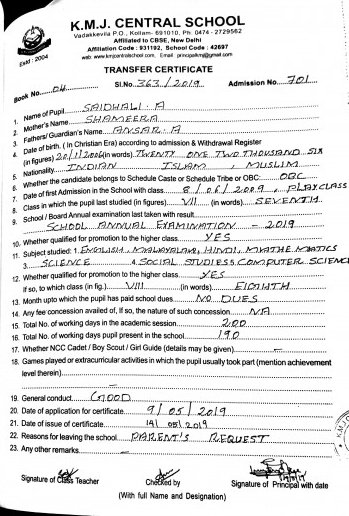 K.M.J. CENTRAL SCHOOL
Vadakkevila P.O., Kollam- 691010, Ph: 0474 - 2729562
Affiliated to CBSE, New Delhi
Affiliation Code : 931192, School Code : 42697
web: www.kmjcentralschool.com Email: principalkmj@gmail.com
Estd : 2004
TRANSFER CERTIFICATE
Book No. 04 Sl.No. 363/2019 Admission No. 701
1. Name of Pupil SAIDHALI.A
2. Mother's Name SHAMEERA
3. Fathers/ Guardian's Name ANSAR.A
4. Date of birth. ( In Christian Era) according to admission & Withdrawal Register
(in figures) 20/1/2006 (in words) TWENTY ONE TWO THOUSAND SIX
5. Nationality INDIAN ISLAM, MUSLIM
6. Whether the candidate belongs to Schedule Caste or Schedule Tribe or OBC: OBC
7. Date of first Admission in the School with class 8/06/2009, PLAYCLASS
8. Class in which the pupil last studied (in figures) VII (in words) SEVENTH
9. School / Board Annual examination last taken with result
SCHOOL ANNUAL EXAMINATION - 2019
10. Whether qualified for promotion to the higher class YES
11. Subject studied: 1. ENGLISH, MALAYALAM, HINDI, MATHEMATICS
3. SCIENCE 4. SOCIAL STUDIES 5. COMPUTER SCIENCE
12. Whether qualified for promotion to the higher class YES
If so, to which class (in fig.) VIII (in words) EIGHTH
13. Month upto which the pupil has paid school dues NO DUES
14. Any fee concession availed of, If so, the nature of such concession NA
15. Total No. of working days in the academic session 200
16. Total No. of working days pupil present in the school 190
17. Whether NCC Cadet / Boy Scout / Girl Guide (details may be given) -
18. Games played or extracurricular activities in which the pupil usually took part (mention achievement
level therein) -
19. General conduct GOOD
20. Date of application for certificate 9/05/2019
21. Date of issue of certificate 14/05/2019
22. Reasons for leaving the school PARENT'S REQUEST
23. Any other remarks -
Signature of Class Teacher Checked by Signature of Principal with date
(With full Name and Designation)